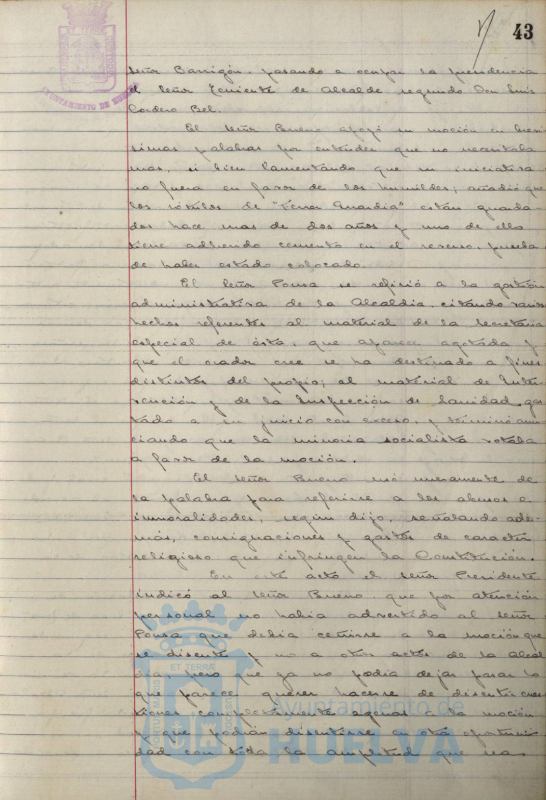 43
AYUNTAMIENTO DE HUELVA
señor Barrigón, pasando a ocupar la presidencia
el señor Teniente de Alcalde segundo Don Luis
Cordero Bel.
El señor Bueno apoyó su moción en breví
simas palabras por entender que no necesitaba
mas, si bien lamentando que su iniciativa
no fuera en favor de los humildes; añadió que
los rótulos de "Fermí Guardia" están guarda-
dos hace mas de dos años y uno de ellos
tiene adherido cemento en el reverso, prueba
de haber estado colocado.
El señor Ponsa se refirió a la gestión
administrativa de la Alcaldía, citando varios
hechos referentes al material de la Secretaría
especial de ésta, que aparece agotada y
que el orador cree se ha destinado a fines
distintos del propio; al material de Inter-
vención y de la Inspección de Sanidad, gas
tado a su juicio con exceso, y terminó anun
ciando que la minoria socialista votaba
a favor de la moción.
El señor Bueno usó nuevamente de
la palabra para referirse a los abusos e
inmoralidades, según dijo, señalando ade-
más, consignaciones y gastos de caracter
religioso que infringen la Constitución.
En este acto el señor Presidente
indicó al señor Bueno, que por atención
personal no habia advertido al señor
Ponsa que debia ceñirse a la moción que
se discute y no a otros actos de la Alcal
dia pero que ya no podia dejar pasar lo
que parece querer hacerse de discutir cues
tiones completamente agenas a la moción
y que podrán discutirse en otra oportuni
dad con toda la amplitud que sea
PORTUS MARIS ET TERRÆ CUSTODIA
Ayuntamiento de
HUELVA